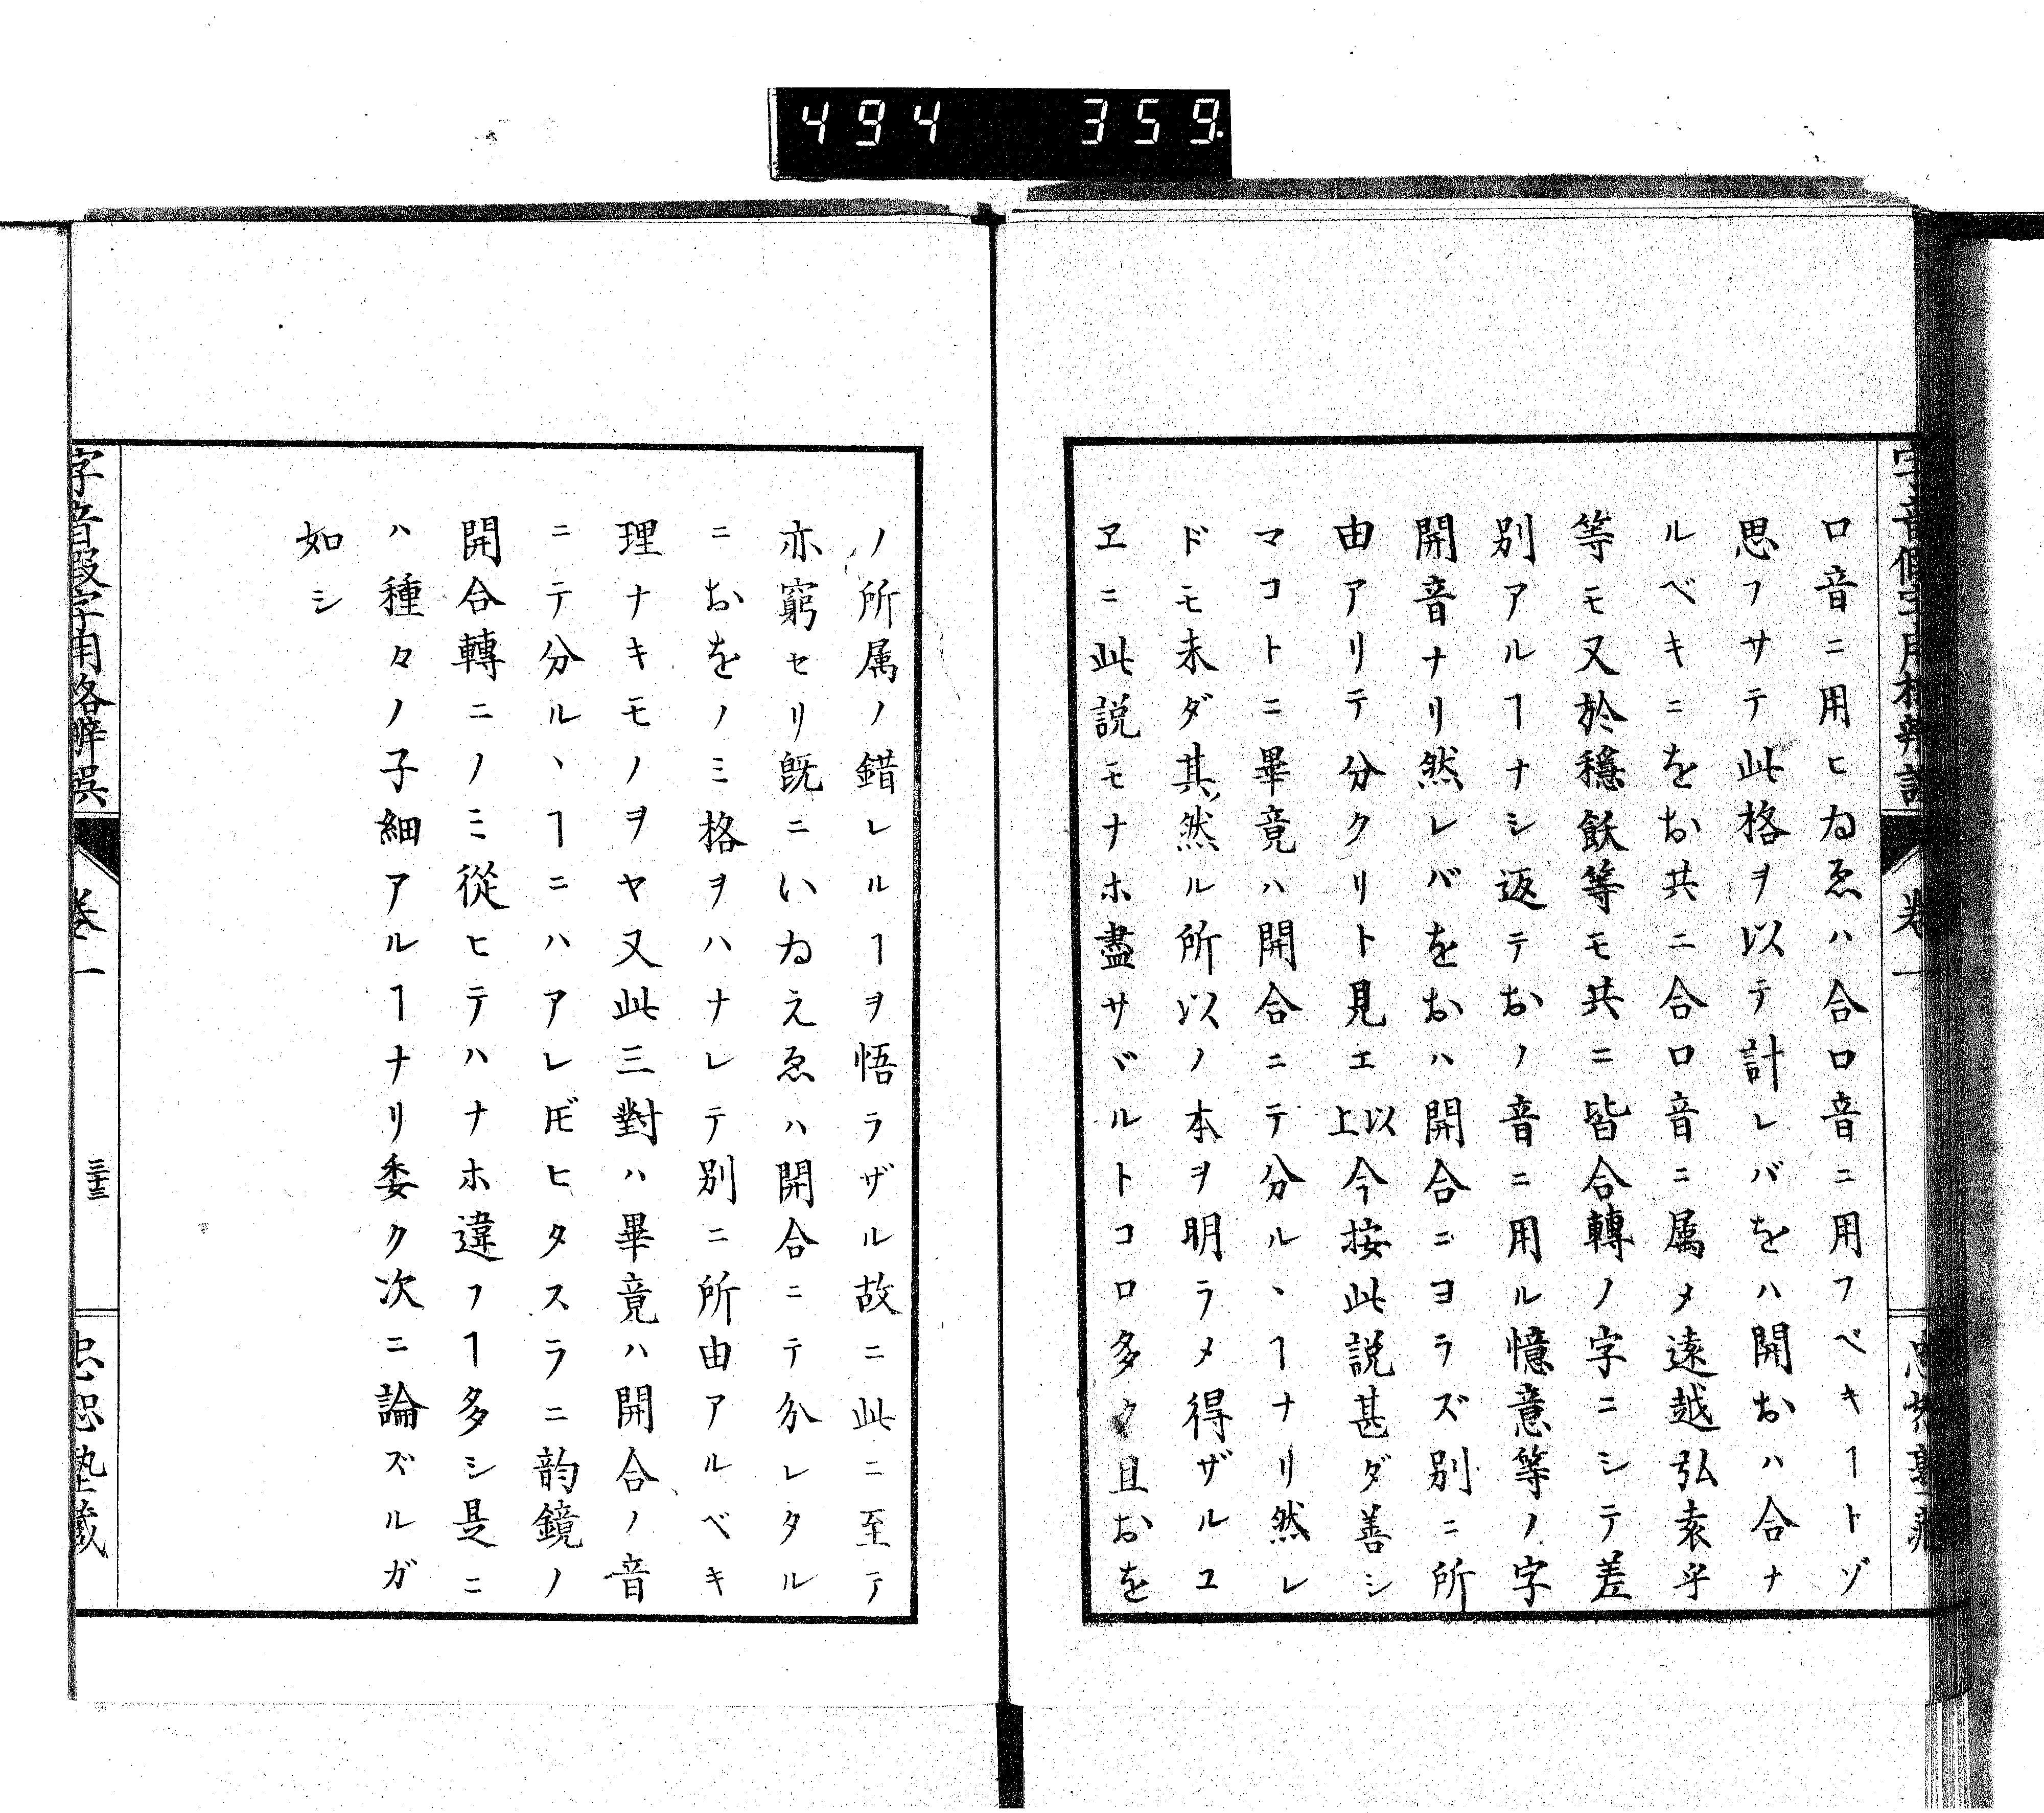 494 359
口音ニ用ヒゐゑハ合口音ニ用フベキヿトゾ
思フサテ此格ヲ以テ計レバをハ開おハ合ナ
ルベキニをお共ニ合口音ニ属メ遠越弘袁乎
等モ又於穩飫等モ共ニ皆合轉ノ字ニシテ差
別アルヿナシ返テおノ音ニ用ル憶意等ノ字
開音ナリ然レバをおハ開合ニヨラズ別ニ所
由アリテ分クリト見エ以上今按此説甚ダ善シ
マコトニ畢竟ハ開合ニテ分ルヽヿナリ然レ
ドモ未ダ其然ル所以ノ本ヲ明ラメ得ザルユ
ヱニ此説モナホ盡サヾルトコロ多ク且おを
ノ所属ノ錯レルヿヲ悟ラザル故ニ此ニ至テ
亦窮セリ既ニいゐえゑハ開合ニテ分レタル
ニおをノミ格ヲハナレテ別ニ所由アルベキ
理ナキモノヲヤ又此三對ハ畢竟ハ開合ノ音
ニテ分ルヽヿニハアレ𪜈ヒタスラニ韵鏡ノ
開合轉ニノミ從ヒテハナホ違フヿ多シ是ニ
ハ種々ノ子細アルヿナリ委ク次ニ論ズルガ
如シ
字音假字用格辨誤 卷一 三十三 忠恕塾藏